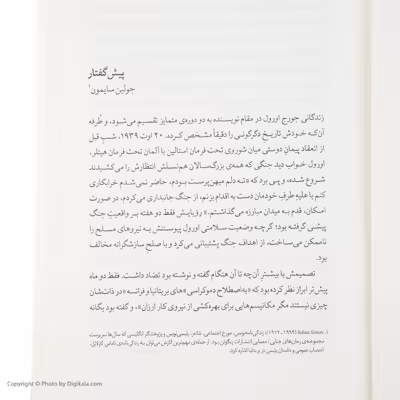 پیش‌گفتار
جولین سایمون¹
زندگانی جورج اورول در مقام نویسنده به دو دوره‌ی متمایز تقسیم می‌شود، و طُرفه
آن‌که خودش تاریخ دگرگونی را دقیقاً مشخص کرده. ۲۰ اوت ۱۹۳۹، شب قبل
از انعقاد پیمان دوستی میان شوروی تحت فرمان استالین با آلمان تحت فرمان هیتلر،
اورول خواب دید جنگی که همه‌ی بزرگ‌سالان هم‌نسلش انتظارش را می‌کشیدند
شروع شده، و پی برد که «ته دلم میهن‌پرست بودم، حاضر نمی‌شدم خرابکاری
کنم یا علیه طرف خودمان دست به اقدام بزنم، از جنگ جانبداری می‌کردم، در صورت
امکان، قدم به میدان مبارزه می‌گذاشتم.» رؤیایش فقط دو هفته بر واقعیتِ جنگ
پیشی گرفته بود؛ گرچه وضعیت سلامتی اورول پیوستنش به نیروهای مسلح را
ناممکن می‌ساخت، از اهداف جنگ پشتیبانی می‌کرد و با صلح سازشگرانه مخالف
بود.
تصمیمش با بیشترِ آن‌چه تا آن هنگام گفته و نوشته بود تضاد داشت. فقط دو ماه
پیش‌تر ابراز نظر کرده بود که «به‌اصطلاح دموکراسی» های بریتانیا و فرانسه «در ذات‌شان
چیزی نیستند مگر مکانیسم‌هایی برای بهره‌کشی از نیروی کار ارزان»، و گفته بود یگانه
۱. Julian Symons (۱۹۱۲-۱۹۹۴): زندگی‌نامه‌نویس، مورخ اجتماعی، شاعر، پلیسی‌نویس و پژوهشگر انگلیسی که سال‌ها سرپرست
Copyright © Photo by Digikala.com